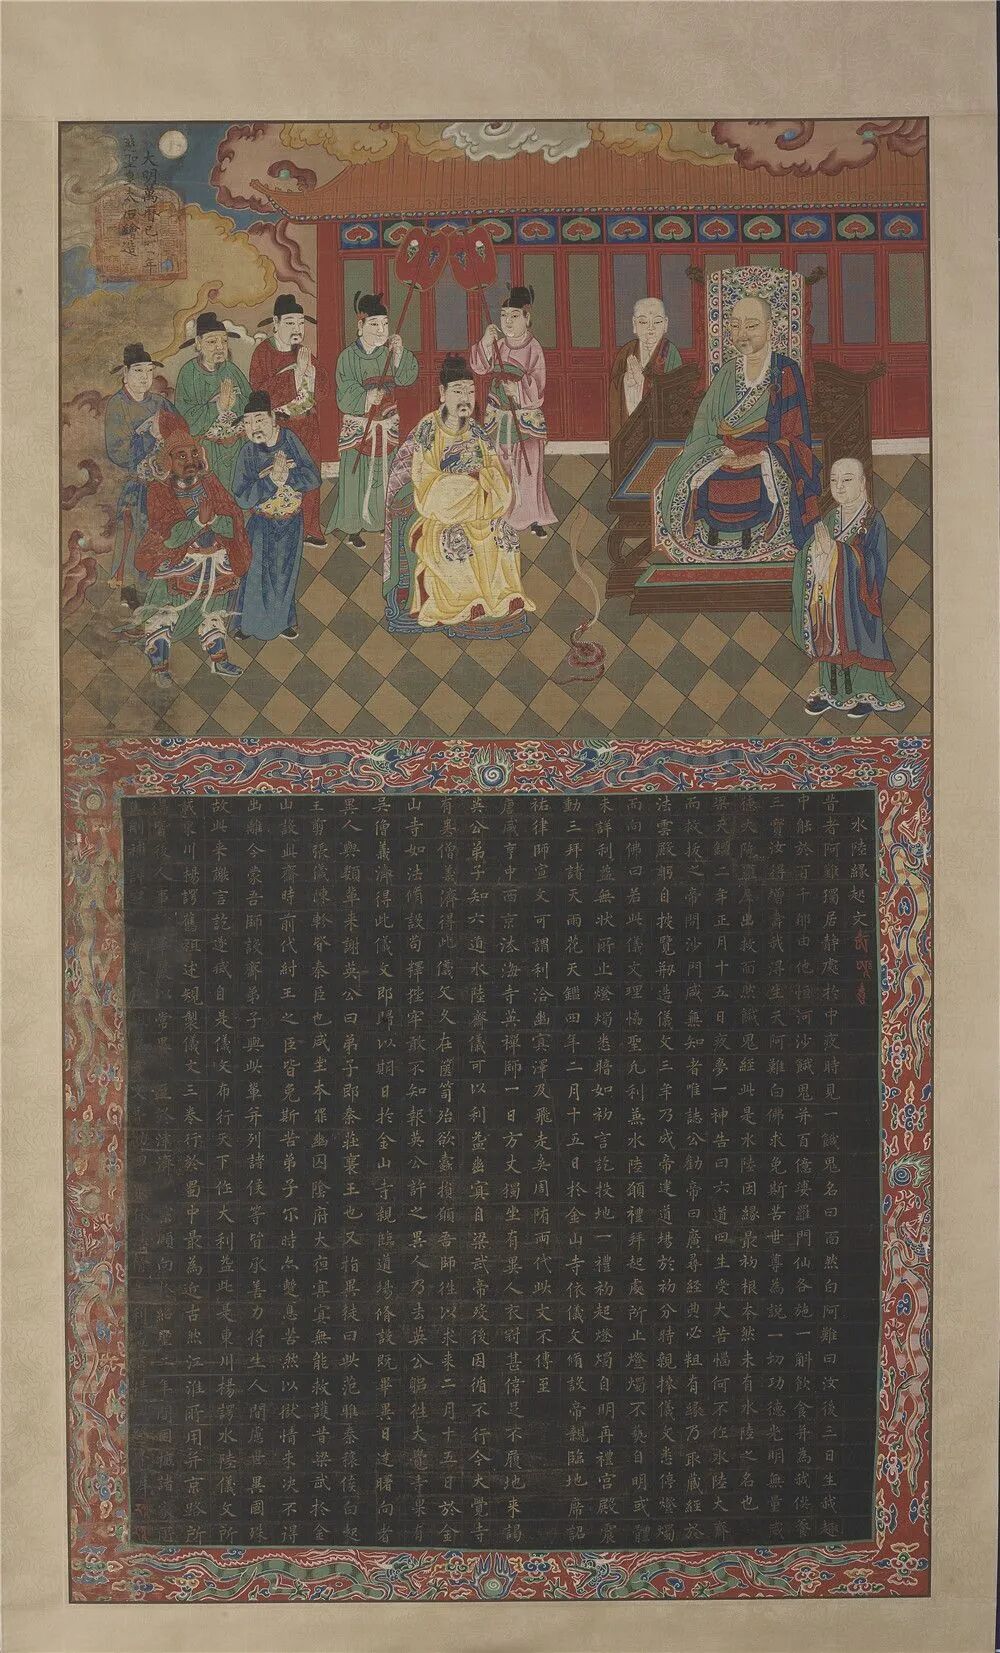 大明萬曆己酉年
慈聖皇太后繪造
水陸緣起文
昔者阿難獨居靜處於中夜時見一餓鬼名曰面然白阿難曰汝後三日生我趣
中能於百千那由他恒河沙餓鬼并百億婆羅門仙各施一斛飲食并為我供養
三寶汝得增壽我得生天阿難白佛求免斯苦世尊為說一切功德光明無量威
德大陁羅尼出救面然餓鬼經此是水陸因緣最初根本然未有水陸之名也
梁天鑑二年正月十五日夜夢一神告曰六道四生受大苦惱何不作水陸大齋
而救拔之帝問沙門咸無知者唯誌公勸帝曰廣尋經典必粗有緣乃取藏經於
法雲殿躬自披覽剏造儀文三年乃成帝建道場於初分時親捧儀文悉停燈燭
而向佛曰若此儀文理協聖凡利益水陸願禮拜起處所止燈燭不爇自明或體
未詳利益無狀所止燈燭悉暗如初言訖投地一禮初起燈燭自明再禮宮殿震
動三拜諸天雨花天鑑四年二月十五日於金山寺依儀文脩設帝親臨地席詔
祐律師宣文可謂利洽幽冥澤及飛走矣周隋兩代此文不傳至
唐咸亨中西京法海寺英禪師一日方丈獨坐有異人衣冠甚偉足不履地來謁
英公弟子知六道水陸齋儀可以利益幽冥自梁武帝歿後因循不行今大覺寺
有吳僧義濟得此儀文久在篋笥殆欲蠹損願吾師往以求來二月十五日於金
山寺如法脩設苟釋狴牢敢不知報英公許之異人乃去英公躬往大覺寺果有
吳僧義濟得此儀文即歸以期日於金山寺親臨道場脩設既畢異日達曙向者
異人與類輩來謝英公曰弟子即秦莊襄王也又指異徒曰此范雎秦穰侯白起
王翦張儀陳軫皆秦臣也咸坐本罪幽囚陰府大夜冥冥無能救護昔梁武於金
山設此齋時前代紂王之臣皆免斯苦弟子尔時亦蹔息苦然以獄情未決不得
出離今蒙吾師設齋弟子與此輩并列諸侯等皆承善力將生人間慮世異國殊
故此來謝言訖遂滅自是儀文布行天下作大利益此是東川楊諤水陸儀文所
載東川楊諤舊祖述規製儀文三卷行於蜀中最為近古然江淮所用并京路所